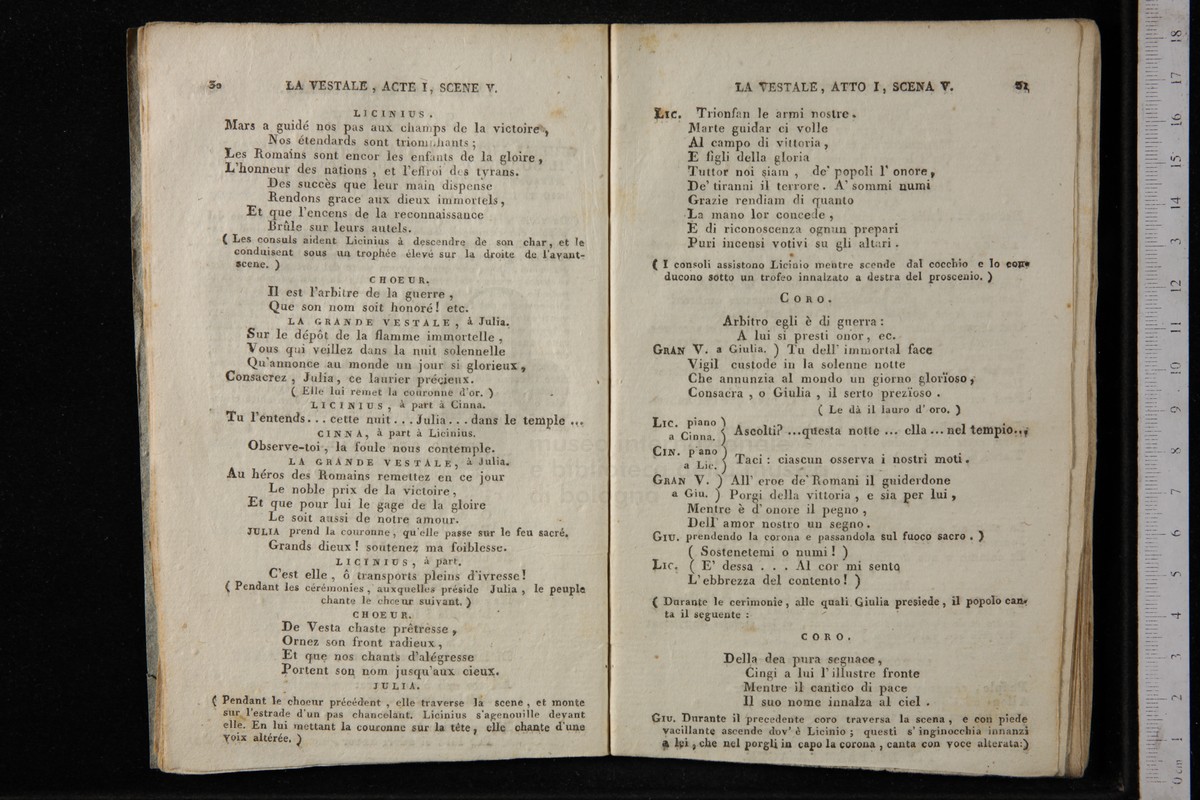 30 LA VESTALE, ACTE I, SCENE V.
LICINIUS.
Mars a guidé nos pas aux champs de la victoire,
Nos étendards sont triomphants;
Les Romains sont encor les enfants de la gloire,
L'honneur des nations, et l'effroi des tyrans.
Des succès que leur main dispense
Rendons grace aux dieux immortels,
Et que l'encens de la reconnaissance
Brûle sur leurs autels.
( Les consuls aident Licinius à descendre de son char, et le
conduisent sous un trophée élevé sur la droite de l'avant-
scene. )
CHOEUR.
Il est l'arbitre de la guerre,
Que son nom soit honoré! etc.
LA GRANDE VESTALE, à Julia.
Sur le dépôt de la flamme immortelle,
Vous qui veillez dans la nuit solennelle
Qu'annonce au monde un jour si glorieux,
Consacrez, Julia, ce laurier précieux.
( Elle lui remet la couronne d'or. )
LICINIUS, à part à Cinna.
Tu l'entends... cette nuit... Julia... dans le temple ...
CINNA, à part à Licinius.
Observe-toi, la foule nous contemple.
LA GRANDE VESTALE, à Julia.
Au héros des Romains remettez en ce jour
Le noble prix de la victoire,
Et que pour lui le gage de la gloire
Le soit aussi de notre amour.
JULIA prend la couronne, qu'elle passe sur le feu sacré.
Grands dieux! soutenez ma foiblesse.
LICINIUS, à part.
C'est elle, ô transports pleins d'ivresse!
( Pendant les cérémonies, auxquelles préside Julia, le peuple
chante le chœur suivant. )
CHOEUR.
De Vesta chaste prêtresse,
Ornez son front radieux,
Et que nos chants d'alégresse
Portent son nom jusqu'aux cieux.
JULIA.
( Pendant le choeur précédent, elle traverse la scene, et monte
sur l'estrade d'un pas chancelant. Licinius s'agenouille devant
elle. En lui mettant la couronne sur la tête, elle chante d'une
voix altérée. )
LA VESTALE, ATTO I, SCENA V. 31
LIC. Trionfan le armi nostre.
Marte guidar ci volle
Al campo di vittoria,
E figli della gloria
Tuttor noi siam, de' popoli l' onore,
De' tiranni il terrore. A' sommi numi
Grazie rendiam di quanto
La mano lor concede,
E di riconoscenza ognun prepari
Puri incensi votivi su gli altari.
( I consoli assistono Licinio mentre scende dal cocchio e lo con-
ducono sotto un trofeo innalzato a destra del proscenio. )
CORO.
Arbitro egli è di guerra:
A lui si presti onor, ec.
GRAN V. a Giulia. ) Tu dell' immortal face
Vigil custode in la solenne notte
Che annunzia al mondo un giorno glorïoso,
Consacra, o Giulia, il serto prezïoso.
( Le dà il lauro d' oro. )
LIC. piano
a Cinna. ) Ascolti? ...questa notte ... ella ... nel tempio...
CIN. piano
a Lic. ) Taci: ciascun osserva i nostri moti.
GRAN V. ) All' eroe de' Romani il guiderdone
a Giu. ) Porgi della vittoria, e sia per lui,
Mentre è d' onore il pegno,
Dell' amor nostro un segno.
GIU. prendendo la corona e passandola sul fuoco sacro. )
( Sostenetemi o numi! )
LIC. ( E' dessa . . . Al cor mi sento
L' ebbrezza del contento! )
( Durante le cerimonie, alle quali Giulia presiede, il popolo can-
ta il seguente:
CORO.
Della dea pura seguace,
Cingi a lui l' illustre fronte
Mentre il cantico di pace
Il suo nome innalza al ciel.
GIU. Durante il precedente coro traversa la scena, e con piede
vacillante ascende dov' è Licinio; questi s' inginocchia innanzi
a lei, che nel porgli in capo la corona, canta con voce alterata:)
museo internazionale
e biblioteca
di bologna
0 cm 1 2 3 4 5 6 7 8 9 10 11 12 13 14 15 16 17 18